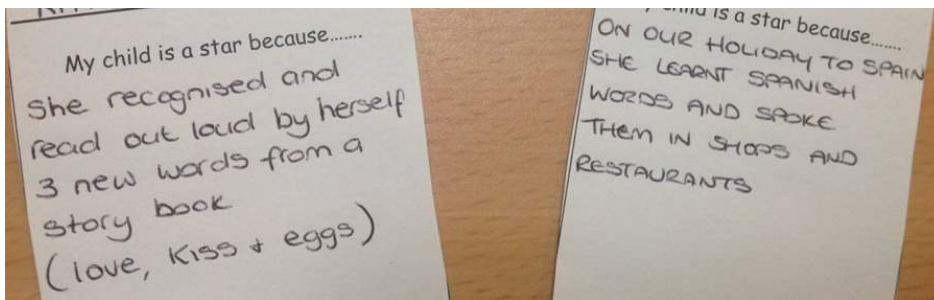 My child is a star because.......
she recognised and
read out loud by herself
3 new words from a
story book
(love, kiss + eggs)
is a star because.......
ON OUR HOLIDAY TO SPAIN
SHE LEARNT SPANISH
WORDS AND SPOKE
THEM IN SHOPS AND
RESTAURANTS